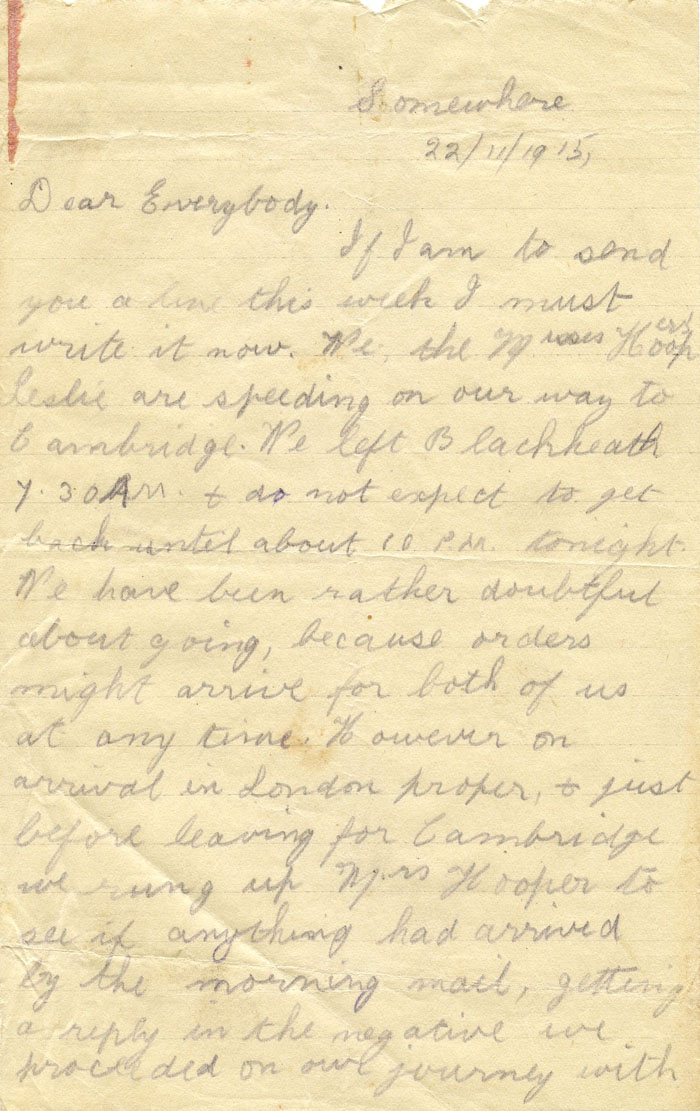 Somewhere
22/11/1915,
Dear Everybody.
If I am to send
you a line this week I must
write it now. We, the Misses Hoopers
Leslie are speeding on our way to
Cambridge. We left Blackheath
7.30 AM. & do not expect to get
back until about 10 P.M. tonight.
We have been rather doubtful
about going, because orders
might arrive for both of us
at any time. However on
arrival in London proper, & just
before leaving for Cambridge
we rung up Mrs Hooper to
see if anything had arrived
by the morning mail, getting
a reply in the negative we
proceeded on our journey with